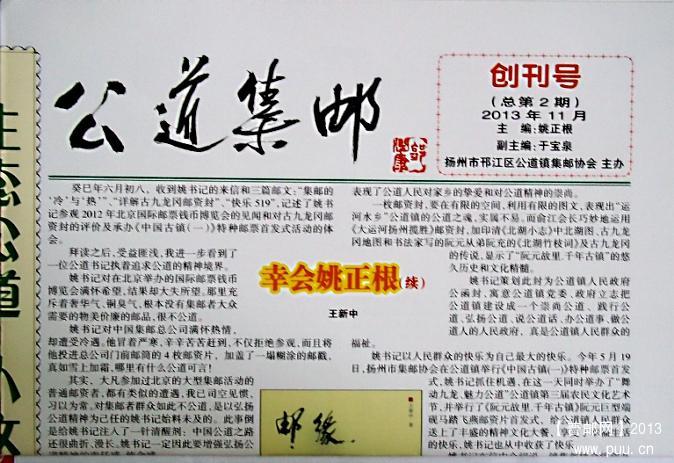 生态公道
公道集邮
创刊号
(总第2期)
2013年11月
主 编:姚正根
副主编:于宝泉
扬州市邗江区公道镇集邮协会 主办
癸巳年六月初八,收到姚书记的来信和三篇邮文:“集邮的
‘冷’与‘热’”、“详解古九龙冈邮资封”、“快乐519”,记述了姚书
记参观2012年北京国际邮票钱币博览会的见闻和对古九龙冈邮
资封的评价及承办《中国古镇(一)》特种邮票首发式活动的体
会。
拜读之后,受益匪浅,我进一步看到了
一位公道书记执着追求公道的精神境界。
姚书记对在北京举办的国际邮票钱币
博览会满怀希望,结果却大失所望。那里充
斥着奢华气、铜臭气,根本没有集邮者大众
需要的物美价廉的邮品,很不公道。
姚书记对中国集邮总公司满怀热情,
却遭受冷遇。他冒着严寒,辛辛苦苦赶到,不仅拒绝参观,而且将
他投进总公司门前邮筒的4枚邮资片,加盖了一塌糊涂的邮戳,
真如雪上加霜,哪里有什么公道可言!
其实,大凡参加过北京的大型集邮活动的
普通邮资者,都有类似的遭遇,我已司空见惯,
习以为常,对集邮者群众如此不公道,是以弘扬
公道精神为己任的姚书记始料未及的。此事倒
是给姚书记注入了一针清醒剂:中国公道之路
还很曲折、漫长。姚书记一定因此要增强弘扬公
幸会姚正根(续)
王新中
邮缘
表现了公道人民对家乡的挚爱和对公道精神的崇尚。
一枚邮资封,要在有限的空间,利用有限的图文,表现出“运
河水乡”公道镇的公道之魂,实属不易。而俞江会长巧妙地运用
《大运河扬州揽胜》邮资封,加印清《北湖小志》中北湖图、古九龙
冈地图和书法家写的阮元从弟阮充的《北湖竹枝词》及古九龙冈
的传说,显示了“阮元故里,千年古镇”的悠
久历史和文化精髓。
姚书记策划此封为公道镇人民政府
公函封,寓意公道镇党委、政府立志把
公道镇建设成一个崇尚公道、践行公
道、弘扬公道,说公道话、办公道事、做公
道人的人民政府,真是公道镇人民群众的
福祉。
姚书记以人民群众的快乐为自己最大的快乐。今年5月19
日,扬州市集邮协会在公道镇举行《中国古镇(一)》特种邮票首发
式,姚书记抓住机遇,在这一天同时举办了“舞
动九龙、魅力公道”公道镇第三届农民文化艺术
节,并举行了《阮元故里,千年古镇》阮元巨型端
砚马踏飞燕邮资片首发式,给公道镇人民群众
送上了丰盛的精神文化大餐,享
的快乐,姚书记也从中收获了快乐。
2013
www.puu.cn